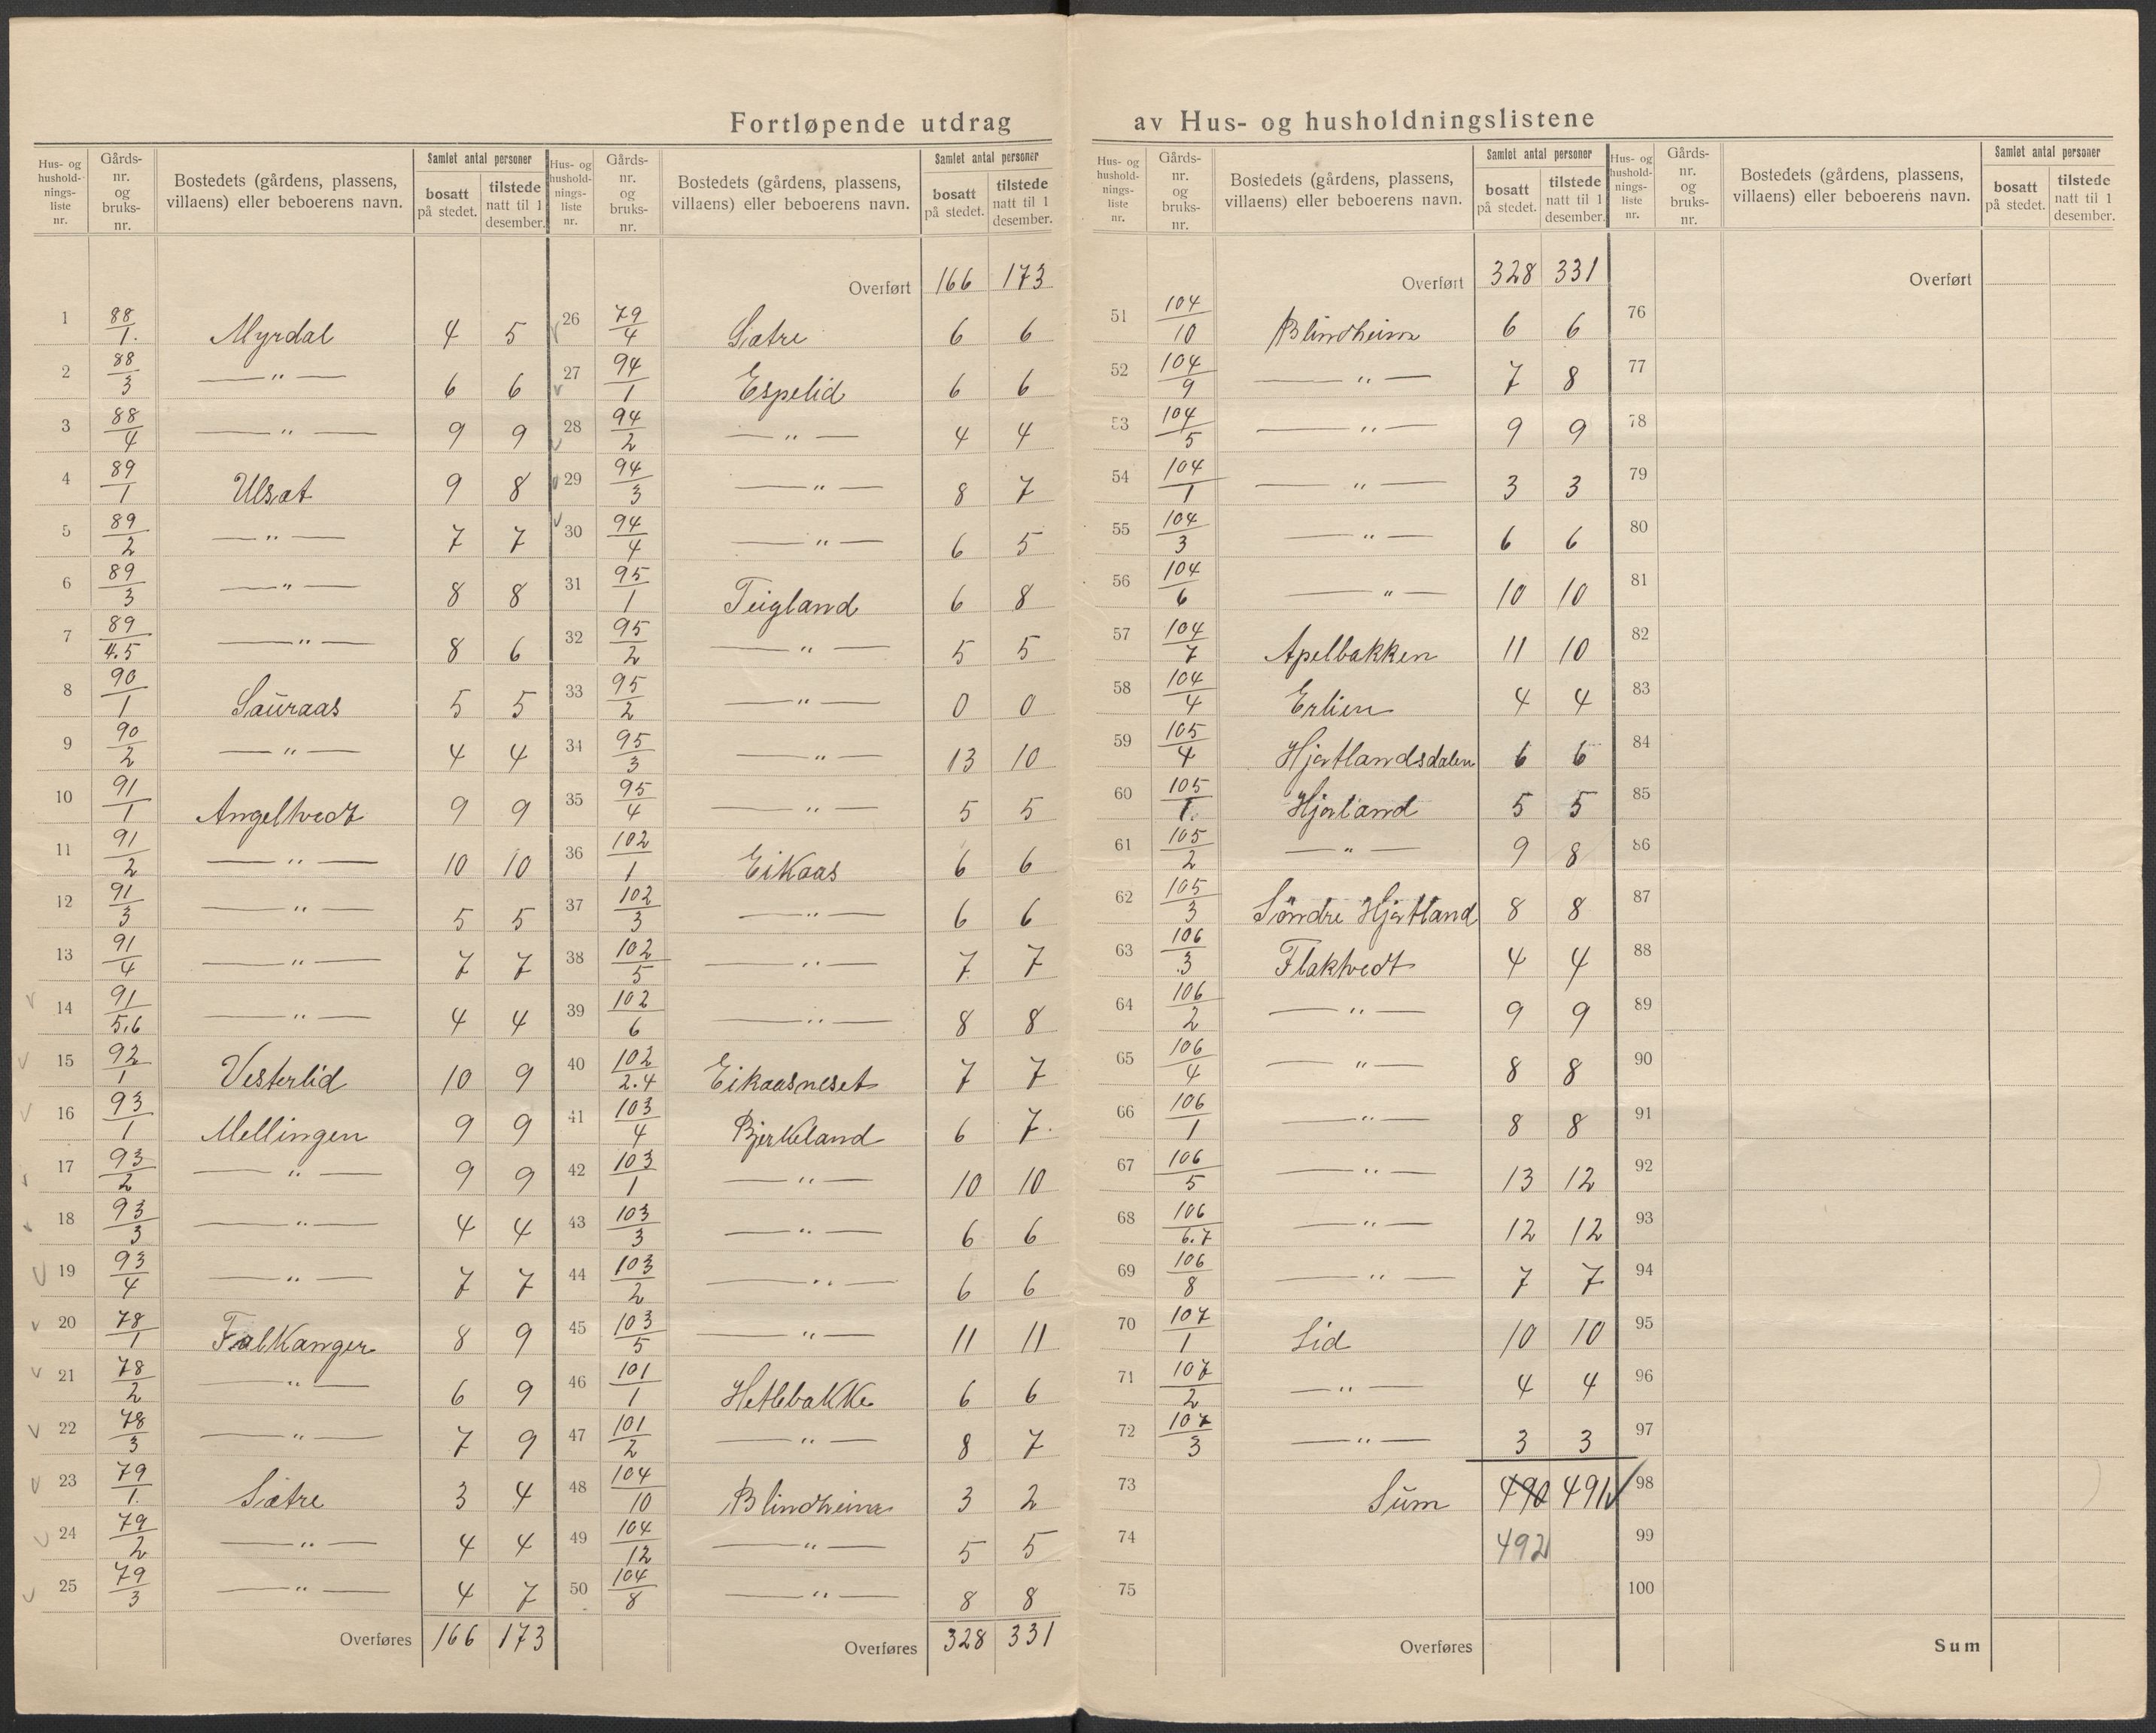 Fortløpende utdrag av Hus- og husholdningslistene
Hus- og hushold-nings-liste nr. | Gårds-nr. og bruks-nr. | Bostedets (gårdens, plassens, villaens) eller beboerens navn. | Samlet antal personer | bosatt på stedet. | tilstede natt til 1 desember.
1 88/1. Myrdal 4 5
2 88/3 —"— 6 6
3 88/4 —"— 9 9
4 89/1 Ulsæt 9 8
5 89/2 —"— 7 7
6 89/3 —"— 8 8
7 89/4.5 —"— 8 6
8 90/1 Sauraas 5 5
9 90/2 —"— 4 4
10 91/1 Angeltvedt 9 9
11 91/2 —"— 10 10
12 91/3 —"— 5 5
13 91/4 —"— 7 7
14 91/5,6 —"— 4 4
15 92/1 Vesterlid 10 9
16 93/1 Mellingen 9 9
17 93/2 —"— 9 9
18 93/3 —"— 4 4
19 93/4 —"— 7 7
20 78/1 Falkanger 8 9
21 78/2 —"— 6 9
22 78/3 —"— 7 9
23 79/1. Sætre 3 4
24 79/2 —"— 4 4
25 79/3 —"— 4 7
Overføres 166 173
Hus- og hushold-nings-liste nr. | Gårds-nr. og bruks-nr. | Bostedets (gårdens, plassens, villaens) eller beboerens navn. | Samlet antal personer | bosatt på stedet. | tilstede natt til 1 desember.
Overført 166 173
26 79/4 Sætre 6 6
27 94/1 Espelid 6 6
28 94/2 —"— 4 4
29 94/3 —"— 8 7
30 94/4 —"— 6 5
31 95/1 Teigland 6 8
32 95/2 —"— 5 5
33 95/2 —"— 0 0
34 95/3 —"— 13 10
35 95/4 —"— 5 5
36 102/1 Eikaas 6 6
37 102/3 —"— 6 6
38 102/5 —"— 7 7
39 102/6 —"— 8 8
40 102/2.4 Eikaasneset 7 7
41 103/4 Bjerkeland 6 7
42 103/1 —"— 10 10
43 103/3 —"— 6 6
44 103/2 —"— 6 6
45 103/5 —"— 11 11
46 101/1 Hetlebakke 6 6
47 101/2 —"— 8 7
48 104/10 Blindheim 3 2
49 104/12 —"— 5 5
50 104/8 —"— 8 8
Overføres 328 331
Hus- og hushold-nings-liste nr. | Gårds-nr. og bruks-nr. | Bostedets (gårdens, plassens, villaens) eller beboerens navn. | Samlet antal personer | bosatt på stedet. | tilstede natt til 1 desember.
Overført 328 331
51 104/10 Blindheim 6 6
52 104/9 —"— 7 8
53 104/5 —"— 9 9
54 104/1 —"— 3 3
55 104/3 —"— 6 6
56 104/6 —"— 10 10
57 104/7 Apelbakken 11 10
58 104/4 Erlien 4 4
59 105/4 Hjortlandsdalen 6 6
60 105/1. Hjorland 5 5
61 105/2 —"— 9 8
62 105/3 Söndre Hjortland 8 8
63 106/3 Flaktvedt 4 4
64 106/2 —"— 9 9
65 106/4 —"— 8 8
66 106/1 —"— 8 8
67 106/5 —"— 13 12
68 106/6.7 —"— 12 12
69 106/8 —"— 7 7
70 107/1 Lid 10 10
71 107/2 —"— 4 4
72 107/3 —"— 3 3
73 Sum 490 491
74 492
75
Overføres
Hus- og hushold-nings-liste nr. | Gårds-nr. og bruks-nr. | Bostedets (gårdens, plassens, villaens) eller beboerens navn. | Samlet antal personer | bosatt på stedet. | tilstede natt til 1 desember.
Overført
76
77
78
79
80
81
82
83
84
85
86
87
88
89
90
91
92
93
94
95
96
97
98
99
100
Sum